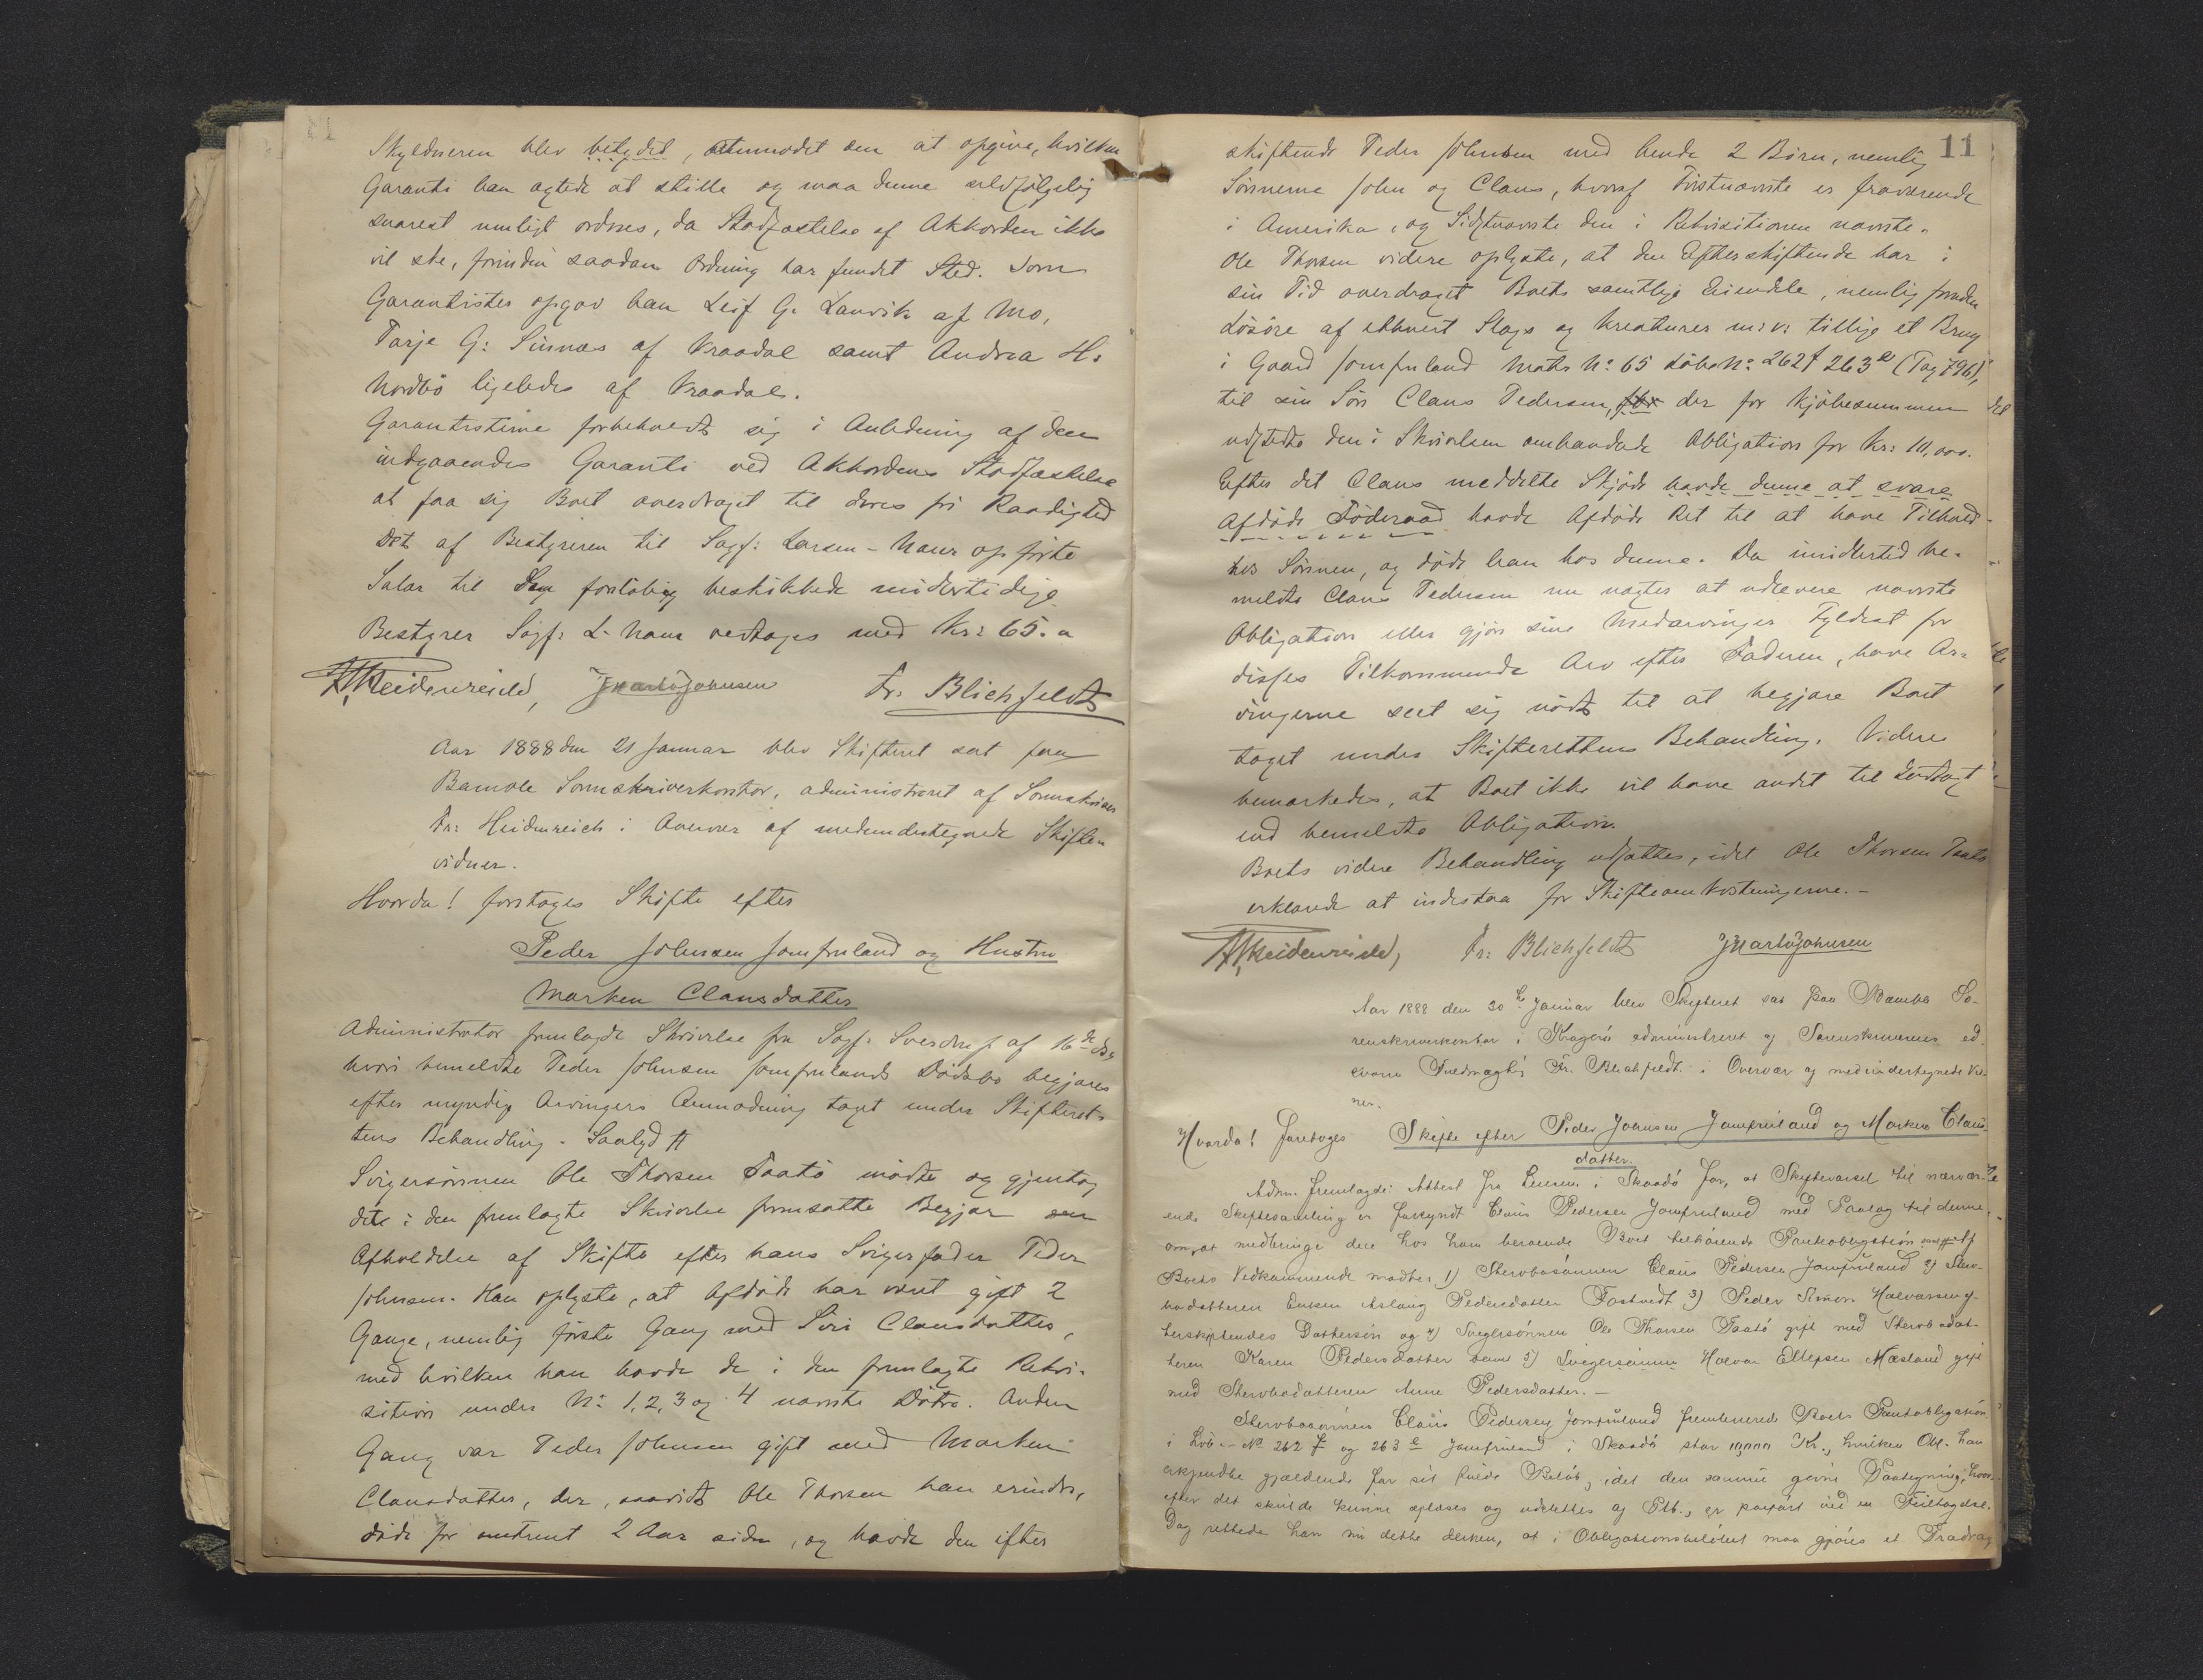 Skyldneren blev betydet, anmodet om at opgive, hvilken
Garanti han agtede at stille og maa denne selvfølgelig
snarest muligt ordnes, da Stadfæstelse af Akkorden ikke
vil ske, forinden saadan Ordning har fundet Sted. Som
Garantister opgav han Leif G. Lauvik af Mo,
Tarje G: Sinnæs af Kraadal samt Andrea H:
Nordbö ligeledes af Kraadal.
Garantisterne forbeholdt sig i Anledning af den
indgaaendes Garanti ved Akkordens Stadfæstelse
at faa sig Boet overdraget til deres fri Raadighed
Det af Bestyreren til Sagf: Larsen-Naur opførte
Salær til den foreløbig beskikkede midlertidige
Bestyrer Sagf: L. Naur vedtages med Kr: 65.
Heidenreich, J Martö Johnsen Fr: Blichfeldt
Aar 1888 den 21 Januar blev Skifteret sat paa
Bamble Sorenskriverkontor, administreret af Sorenskriver
Fr: Heidenreich i Overvær af medundertegnede Skifte-
vidner.
Hvorda! foretages Skifte efter
Peder Johnsen Jomfruland og Hustru
Marken Clausdatter
Administrator fremlagde Skrivelse fra Sagf: Sverdrup af 16de ds,
hvori bemeldte Peder Johnsen Jomfrulands Dödsbo begjæres
efter myndige Arvingers Anmodning taget under Skifteret-
tens Behandling. Saalyd #
Svigersönnen Ole Thorsen Taatö mödte og gjentog
det i den fremlagte Skrivelse fremsatte Begjær om
Afholdelse af Skifte efter hans Svigerfader Peder
Johnsen. Han oplyste, at Afdöde har været gift 2
Gange, nemlig förste Gang med Siri Clausdatter,
med hvilken han havde de i den fremlagte Rekvi-
sition under No 1, 2, 3 og 4 nævnte Döttre. Anden
Gang var Peder Johnsen gift med Marken
Clausdatter, der, saavidt Ole Thorsen kan erindre,
döde for omtrent 2 Aar siden, og havde den efter
11
skiftende Peder Johnsen med hende 2 Börn, nemlig
Sönnerne John og Claus, hvoraf Förstnævnte er fraværende
i Amerika, og Sidstnævnte den i Rekvisitionen nævnte.
Ole Thorsen videre oplyste, at den Efterskiftende har i
sin Tid overdraget Boets samtlige Eiendele, nemlig foruden
Lösöre af ethvert Slags og Kreaturer m: v: tillige et Brug
i Gaard Jomfruland Matr No: 65 Löbe No: 262f 263e (Tag 796),
til sin Sön Claus Pedersen, der for Kjöbesummen
udstedte den i Skrivelsen omhandlede Obligation for Kr: 10,000.
Efter det Claus meddelte Skjöde havde denne at svare
Afdöde Föderaad havde Afdöde Ret til at have Tilhold
hos Sönnen, og döde han hos denne. Da imidlertid be-
meldte Claus Pedersen nu nægter at udlevere nævnte
Obligation eller gjöre sine Medarvinger Fyldest for
disses Tilkommende Arv efter Faderen, have Ar-
vingerne seet sig nödt til at begjære Boet
taget under Skifterettens Behandling. Videre
bemærkedes, at Boet ikke vil have andet til Indtægt
end bemeldte Obligation.
Boets videre Behandling udsattes, idet Ole Thorsen Taatö
erklærede at indestaa for Skifteomkostningerne.-
Heidenreich, Fr: Blichfeldt J Martö Johnsen
Aar 1888 den 30te Januar blev Skifteret sat paa Bamble So-
renskriverkontor i Kragerö administreret af Sorenskriverens ed-
svorne Fuldmægtig Fr. Blichfeldt i Overvær af medundertegnede Vid-
ner.
Hvorda! Foretoges Skifte efter Peder Johnsen Jomfruland og Marken Claus-
datter.
Adm. fremlagde: Attest fra Lensm. i Skaadö for, at Skiftevarsel til nærvær-
ende Skiftesamling er forkyndt Claus Pedersen Jomfruland med Paalæg til denne
om, at medbringe den hos ham beroende Boet tilhörende Panteobligation # Af
Boets Vedkommende mödte, 1) Stervbosönnen Claus Pedersen Jomfruland 2) Sterv-
bodatteren Enken Aslaug Pedersdatter Fostvedt 3) Peder Simon Halvorsen, ef-
terskiftendes Dattersön og 4) Svigersönnen Ole Thorsen Taatö gift med Stervbodat-
teren Karen Pedersdatter samt 5) Svigersönnen Halvor Ellefsen Mæsland gift
med Stervbodatteren Anne Pedersdatter.-
Stervbosönnen Claus Pedersen Jomfruland fremleverede Boets Panteobligation
i Löb.-No 262 f og 263 e Jomfruland i Skaadö stor 10,000 Kr., hvilken Obl. han
erkjendte gjældende for sit fulde Belöb, idet den samme givne Paategning, hvor-
efter det skulde kunne aflæses og udslettes af Ptb., er paafört ved en Feiltagelse.
Dog rettede han nu dette derhen, at i Obligationsbelöbet maa gjöres et Fradrag